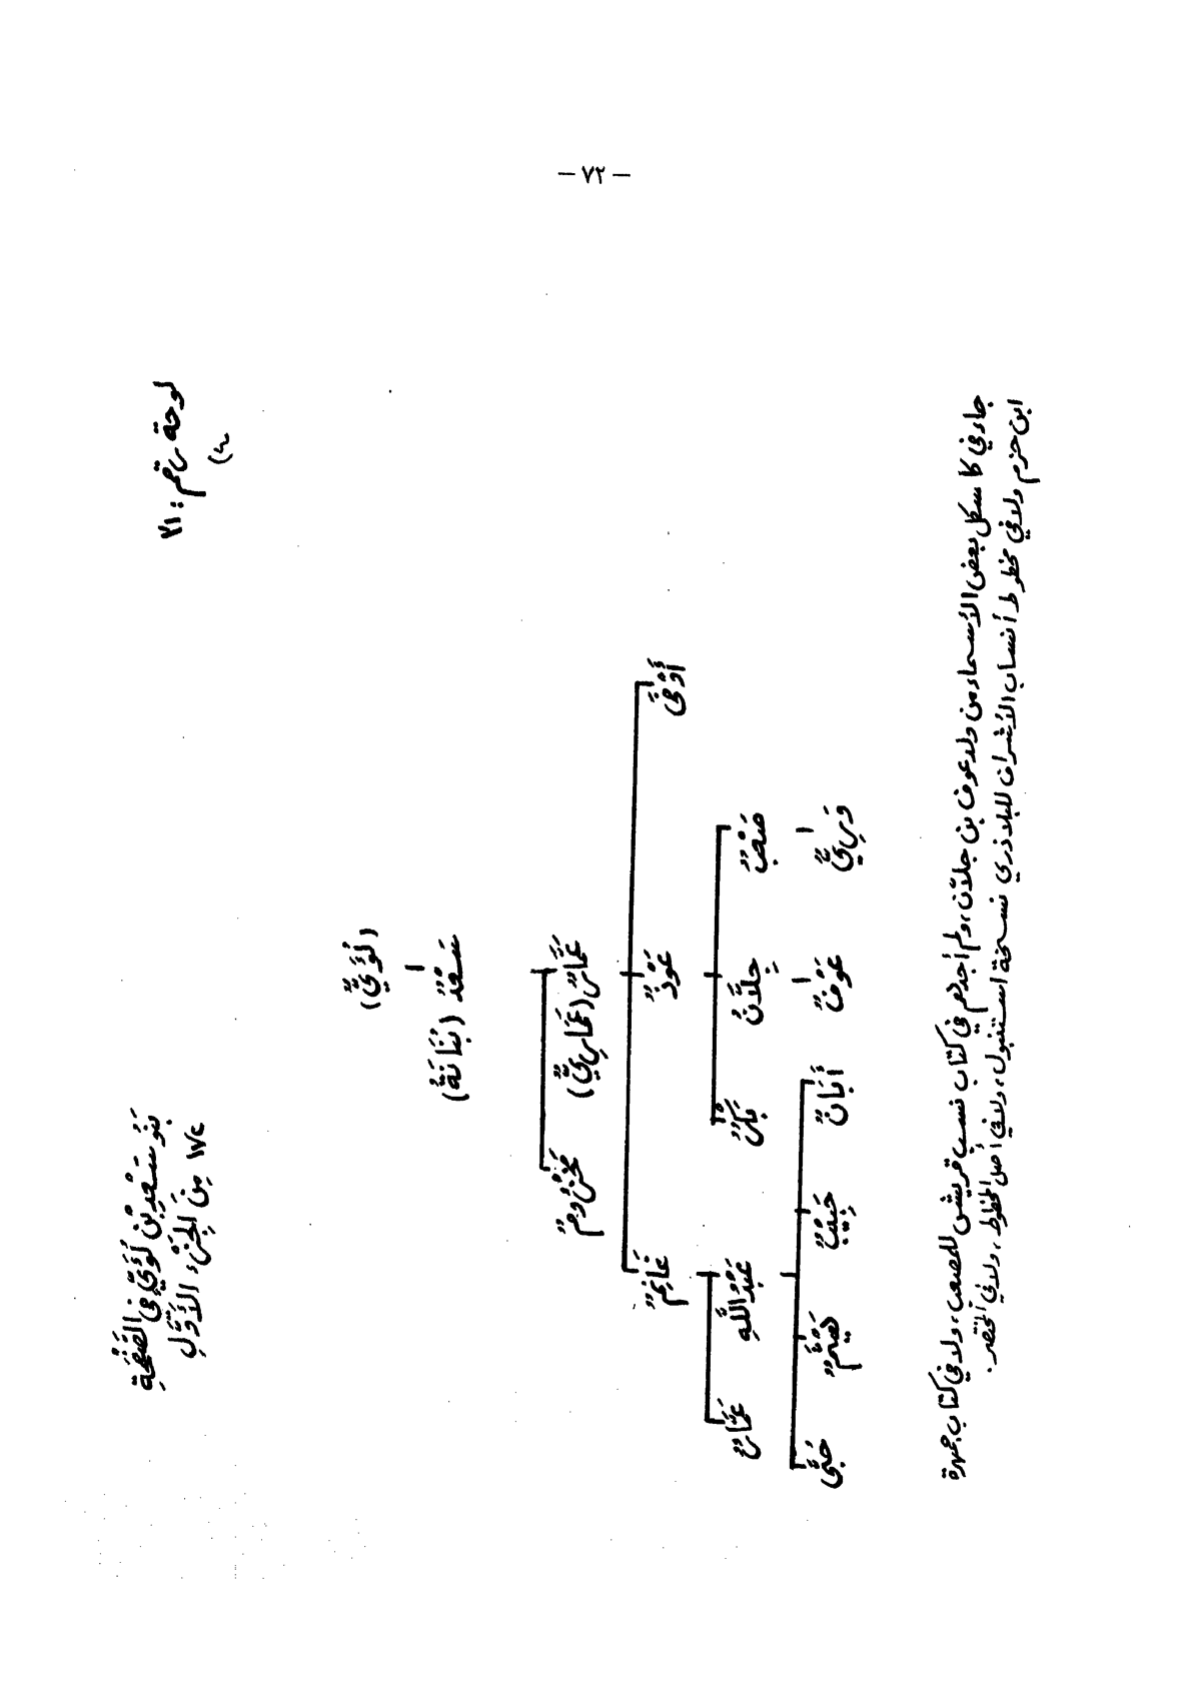 — ٧٢ —
لوحة رقم : ٢١
بَنُو سَعْدِ بْنِ لُؤَيٍّ فِي الصَّفْحَةِ
١٧٤ مِنَ الجُزْءِ الأَوَّلِ
(لُؤَيٌّ)
سَعْدٌ (بُنَانَةُ)
عَمَّارٌ (عَمَارِيٌّ) مَخْزُومٌ
أَوْفَى عَوْذٌ غَانِمٌ
صَعْبٌ جِلَّانُ بَكْرٌ عَبْدُ اللَّهِ عَمَّارٌ
وَرِيٌّ عَوْفٌ أَبَانٌ حَبِيْبٌ هَيْثَمٌ حُبَّى
جاء في كامل بعض الأسماء من ولد عوف بن جلّان، ولم أجدهم في كتاب نسب قريش للمصعب، ولا في كتاب جمهرة
ابن حزم ولا في مخطوط أنساب الأشراف للبلاذري نسخة استنبول، ولا في أصل المخطوط، ولا في المختصر.